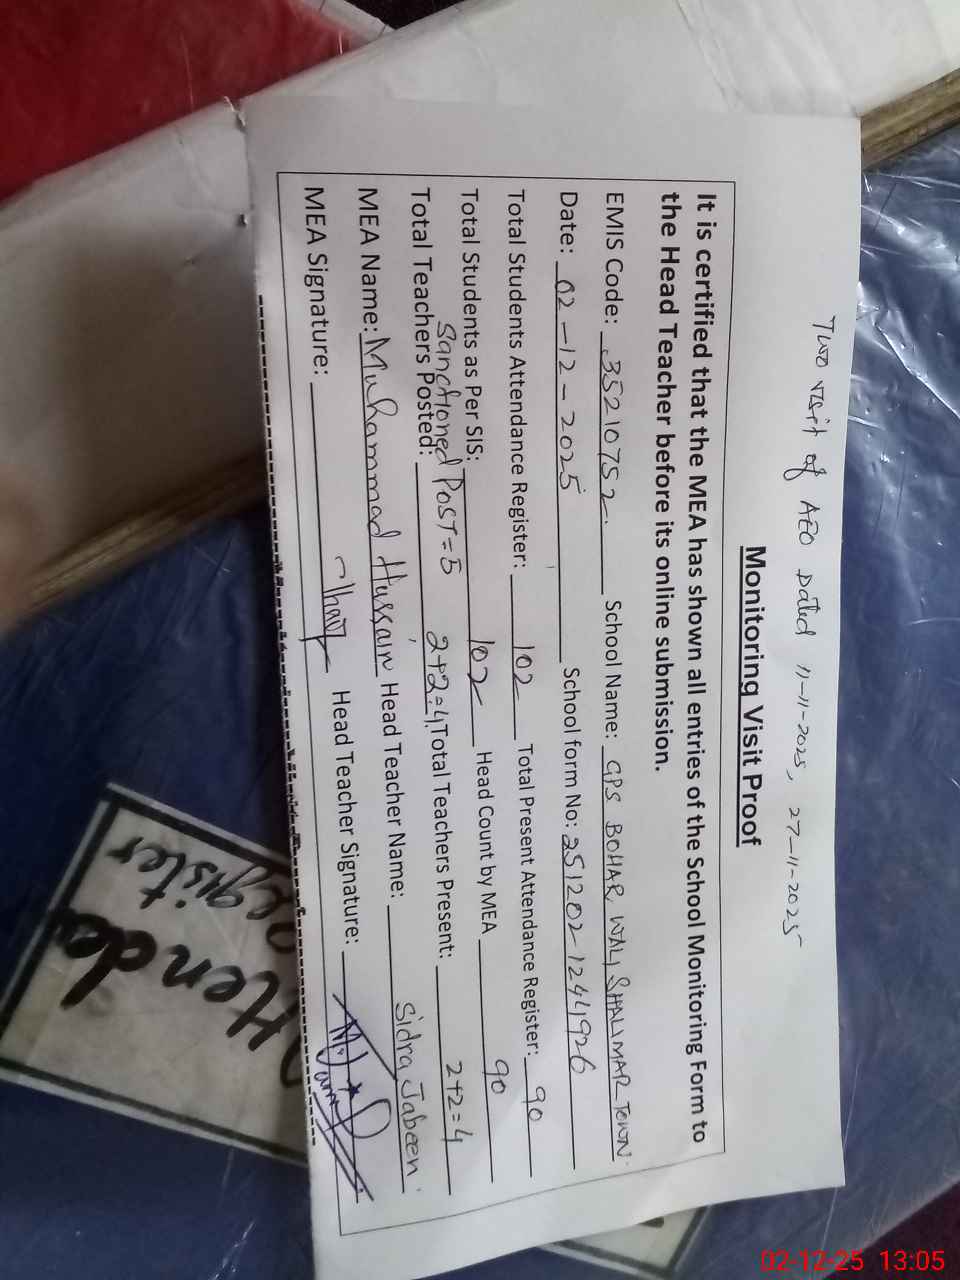 Two visit of AEO Dated 11-11-2025, 27-11-2025
Monitoring Visit Proof
It is certified that the MEA has shown all entries of the School Monitoring Form to
the Head Teacher before its online submission.
EMIS Code: 35210752 School Name: GPS BOHAR WALI SHALIMAR TOWN
Date: 02-12-2025 School form No: 251202-1244926
Total Students Attendance Register: 102 Total Present Attendance Register: 90
Total Students as Per SIS: 102 Head Count by MEA 90
Sanctioned Post = 5
Total Teachers Posted: 2+2=4 Total Teachers Present: 2+2=4
MEA Name: Muhammad Hussain Head Teacher Name: Sidra Jabeen
MEA Signature: Head Teacher Signature:
Register
02-12-25 13:05